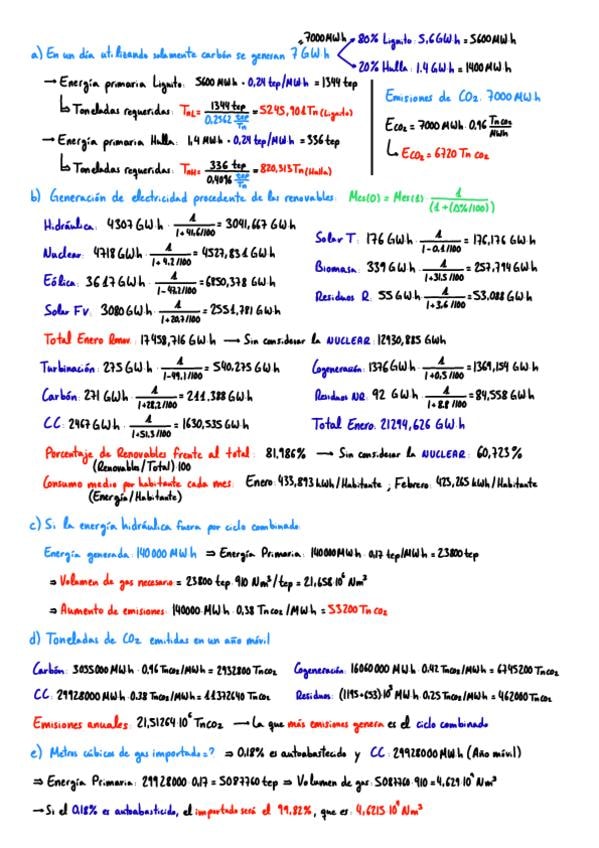 = 7000MWh → 80% Lignito: 5,6GWh = 5600MWh
a) En un día utilizando solamente carbón se generan 7GWh
→ 20% Hulla: 1.4GWh = 1400MWh
→ Energía primaria Lignito: 5600MWh · 0,24 tep/MWh = 1344 tep
↳ Toneladas requeridas: TnL = 1344 tep / 0,2562 tep/Tn = 5245,901Tn (Lignito)
→ Energía primaria Hulla: 1,4MWh · 0,24 tep/MWh = 336 tep
↳ Toneladas requeridas: TnH = 336 tep / 0,4096 tep/Tn = 820,313Tn (Hulla)
Emisiones de CO2: 7000MWh
ECO2 = 7000MWh · 0.96 TnCO2/MWh
↳ ECO2 = 6720 TnCO2
b) Generación de electricidad procedente de las renovables: Mes(0) = Mes(1) · 1/(1+(Δ%/100))
Hidráulica: 4307GWh · 1/1+41,6/100 = 3041,667GWh
Nuclear: 4718GWh · 1/1+4.2/100 = 4527,831GWh
Eólica: 3617GWh · 1/1-47.2/100 = 6850,378GWh
Solar Fv: 3080GWh · 1/1+20.7/100 = 2551,781GWh
Solar T: 176GWh · 1/1-0.1/100 = 176,176GWh
Biomasa: 339GWh · 1/1+31,5/100 = 257,794GWh
Residuos R: 55GWh · 1/1+3,6/100 = 53,088GWh
Total Enero Renov: 17458,716GWh → Sin considerar la NUCLEAR: 12930,885GWh
Turbinación: 275GWh · 1/1-49.1/100 = 540.275GWh
Carbón: 271GWh · 1/1+28,2/100 = 211,388GWh
CC: 2467GWh · 1/1+51,3/100 = 1630,535GWh
Cogeneración: 1376GWh · 1/1+0,5/100 = 1369,154GWh
Residuos NR: 92GWh · 1/1+8.8/100 = 84,558GWh
Total Enero: 21294,626GWh
Porcentaje de Renovables frente al total: 81,986% → Sin considerar la NUCLEAR: 60,723%
(Renovables/Total)·100
Consumo medio por habitante cada mes: Enero: 433,893kWh/Habitante ; Febrero: 423,265kWh/Habitante
(Energía/Habitante)
c) Si la energía hidráulica fuera por ciclo combinado:
Energía generada: 140000MWh ⇒ Energía Primaria: 140000MWh · 0.17 tep/MWh = 23800 tep
⇒ Volumen de gas necesario = 23800 tep · 910 Nm³/tep = 21,658·10⁶ Nm³
⇒ Aumento de emisiones: 140000MWh · 0.38 TnCO2/MWh = 53200TnCO2
d) Toneladas de CO2 emitidas en un año móvil
Carbón: 3055000MWh · 0.96 TnCO2/MWh = 2932800 TnCO2
Cogeneración: 16060000MWh · 0.42 TnCO2/MWh = 6745200 TnCO2
CC: 29928000MWh · 0.38 TnCO2/MWh = 11372640 TnCO2
Residuos: (1195+653)·10³ MWh · 0.25 TnCO2/MWh = 462000 TnCO2
Emisiones anuales: 21,51264·10⁶ TnCO2 → La que más emisiones genera es el ciclo combinado
e) Metros cúbicos de gas importado=? ⇒ 0.18% es autoabastecido y CC: 29928000MWh (Año móvil)
⇒ Energía Primaria: 29928000·0.17 = 5087760 tep ⇒ Volumen de gas: 5087760·910 = 4,629·10⁹ Nm³
→ Si el 0.18% es autoabastecido, el importado será el 99.82%, que es: 4,6215·10⁹ Nm³